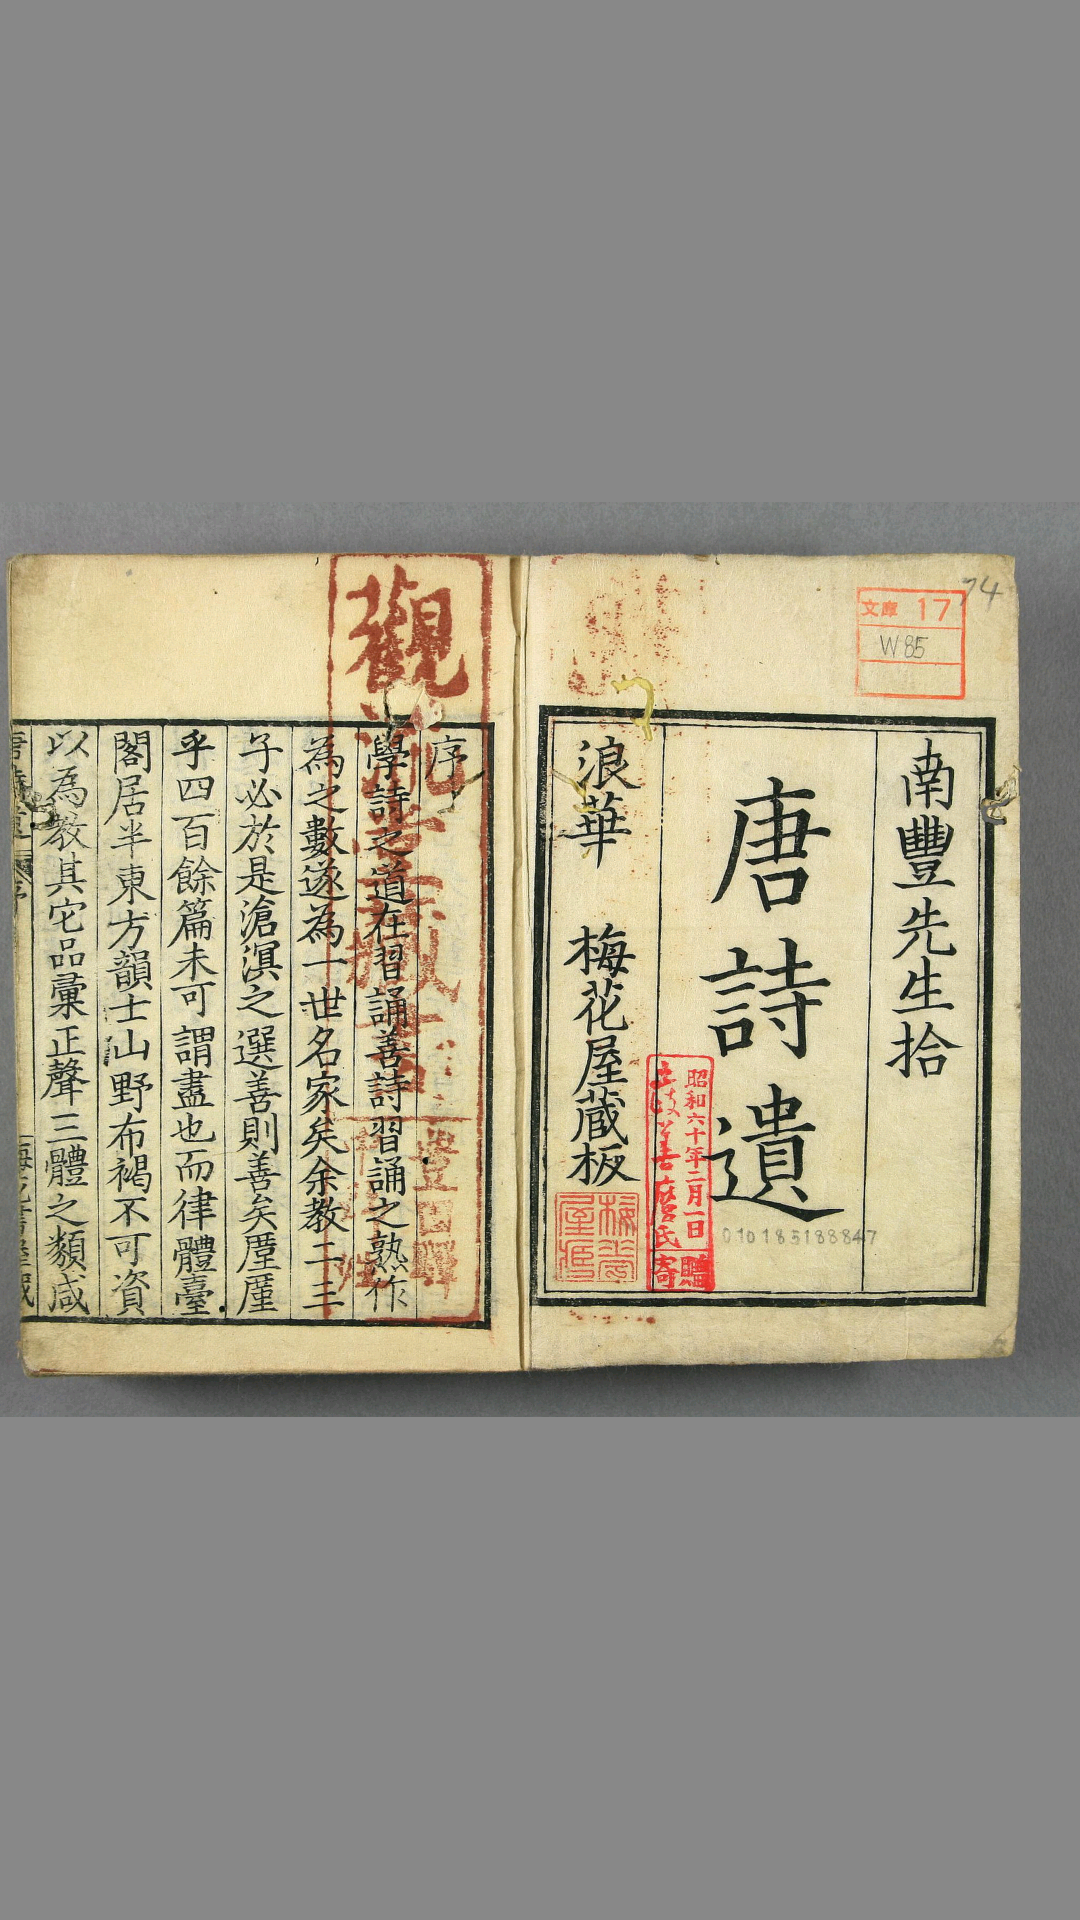 74
文庫 17
W85
南豐先生拾
唐詩遺
浪華 梅花屋蔵板
昭和六十年二月一日
善麿氏
寄贈
010185188847
觀
序
學詩之道在習誦善詩習誦之熟作
為之數遂為一世名家矣余教二三
子必於是滄溟之選善則善矣厪厪
乎四百餘篇未可謂盡也而律體臺
閣居半東方韻士山野布褐不可資
以為教其它品彙正聲三體之類咸